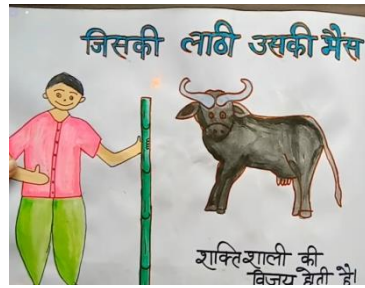 जिसकी लाठी उसकी भैंस
शक्तिशाली की
विजय होती है।